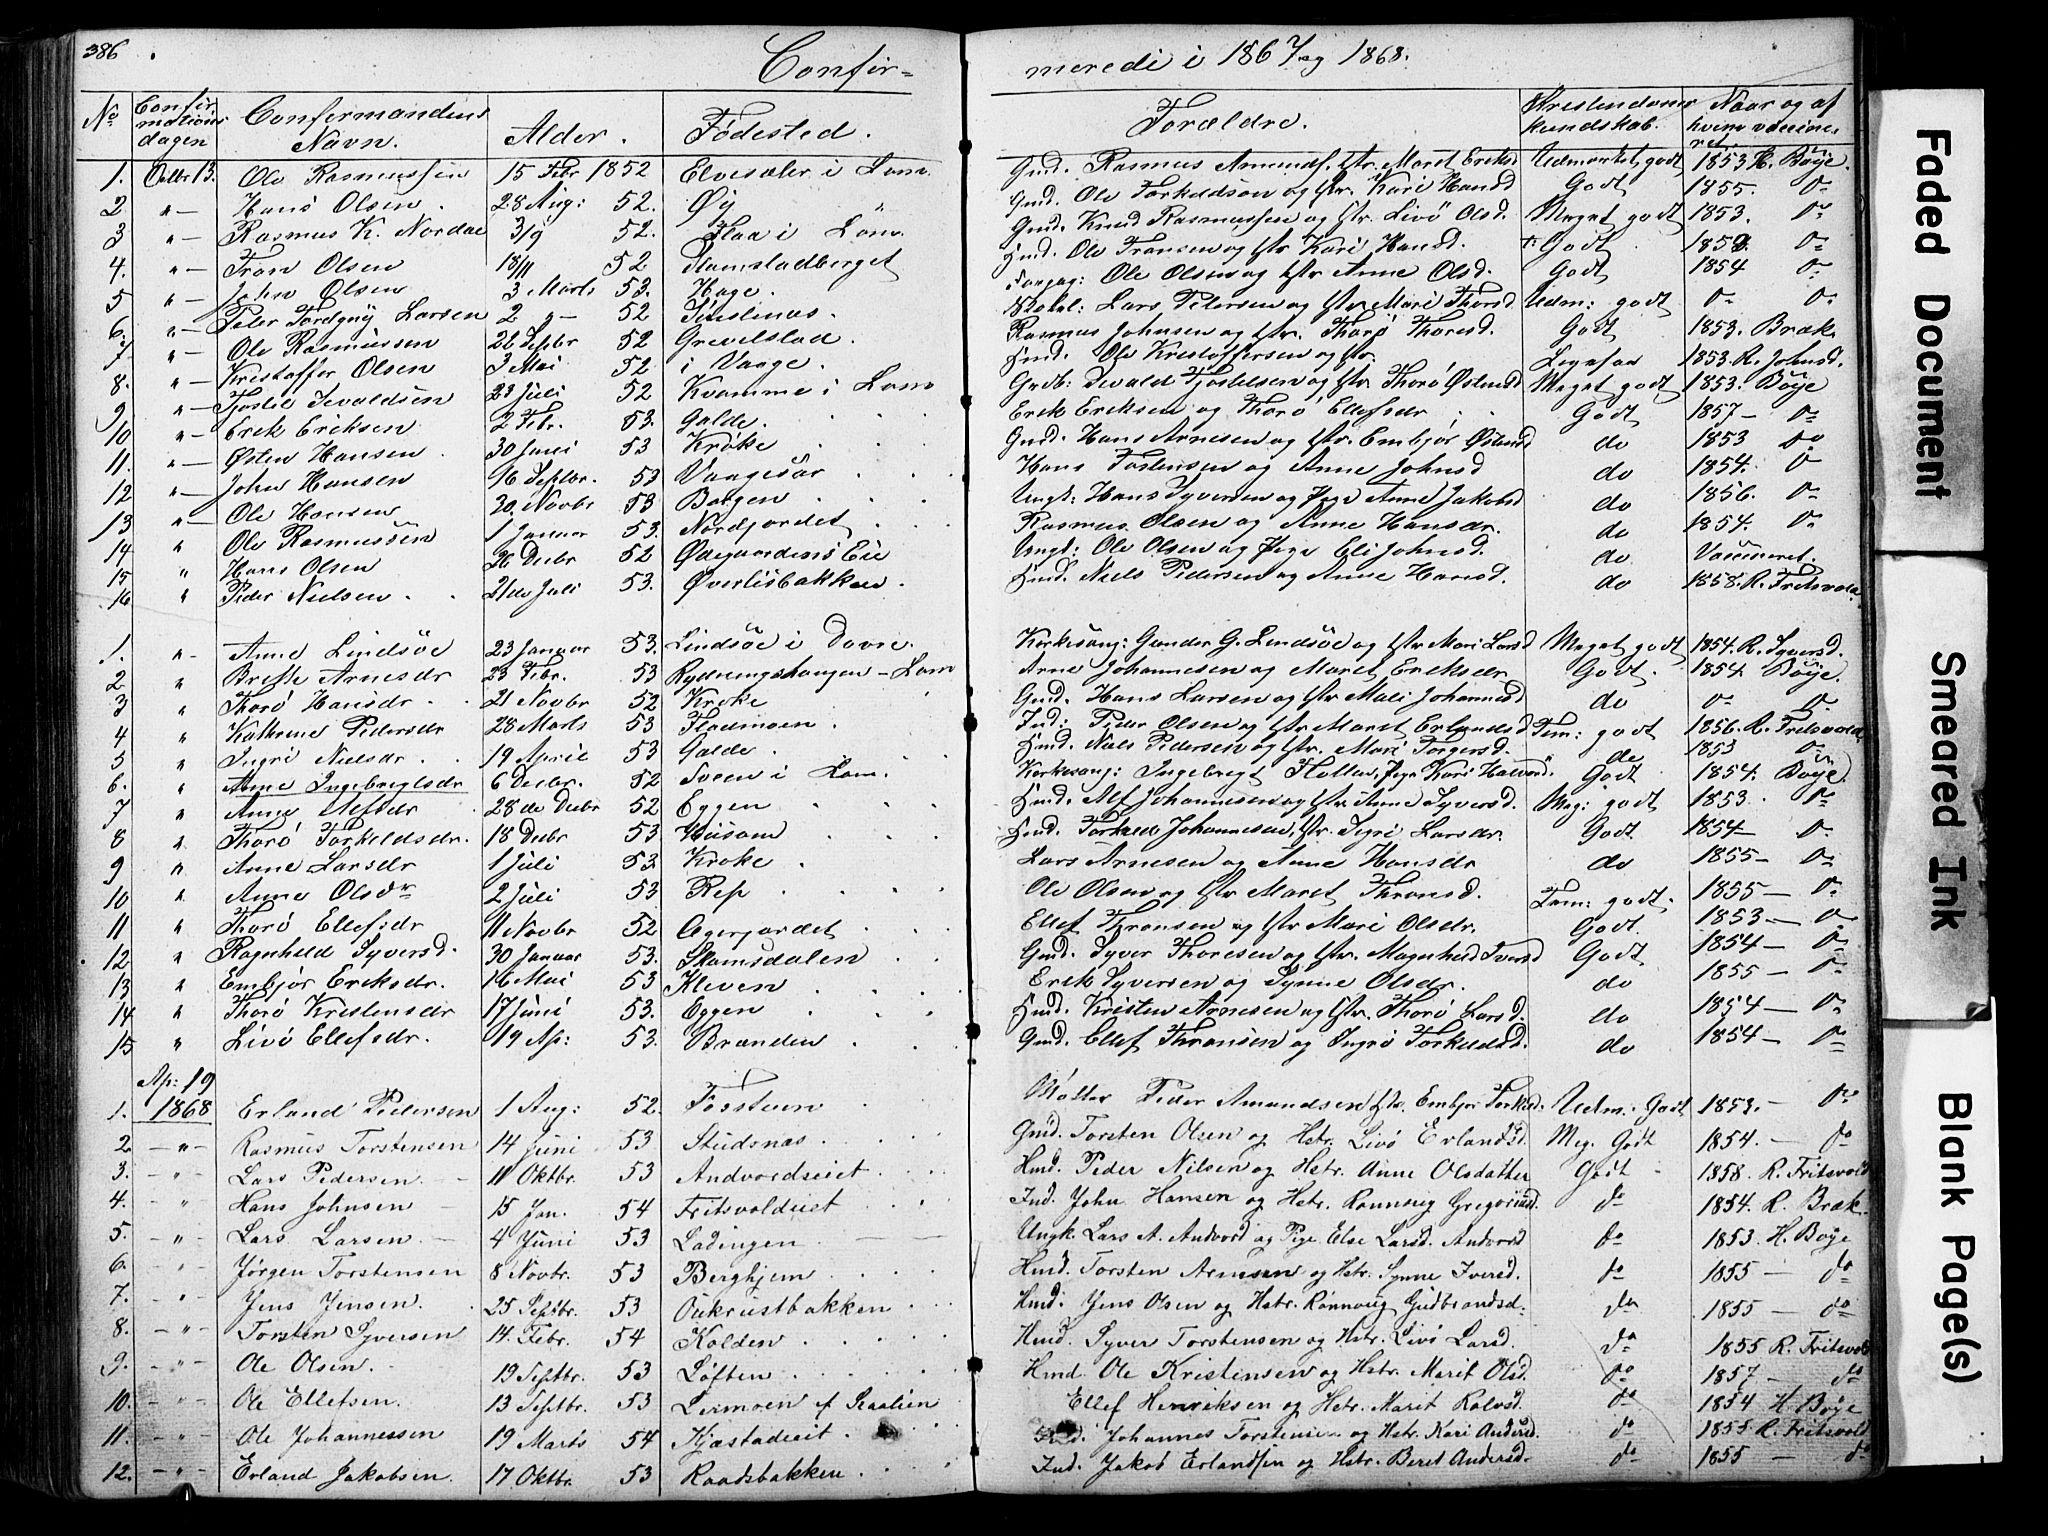 386
Confir= meredi i 1867 og 1868.
No Confirmations dagen Confermandens Navn. Alder. Fødested. Forældre. Kristendoms kundskab. Naar og af hvem vaccineret
1. Octbr 13. Ole Rasmussen 15 Febr 1852 Elvesæter i Lom. Gmd. Rasmus Amunds. Hstr. Maret Eriksd Udmærket godt 1853 H. Bøye.
2 "— Hans Olsen. 28 Aug: 52. Øy Gmd. Ole Torkeldsen og Hstr. Kari Hansd Godt 1855. Do
3 "— Rasmus K. Nordal 3/9 52. Flaa i Lom. Gmd. Knud Rasmussen og Hstr. Livö Olsd. Meget godt 1853. Do
4. "— Tron Olsen 18/11 52 Hamstadberget Hmd. Ole Tronsen og Hstr Kari Hansd. Godt 1852. Do
5 "— John Olsen 3 Marts 53. Hage. Ole Olsen og Hstr Anne Olsd. Godt 1854 Do
6. "— Peter Tordgny Larsen 2 52 Lars Pedersen og Hstr. Mari Thorsd. Udm: godt Do Do
7 "— Ole Rasmussen 26 Septbr 52 Grevelstad. Rasmus Johnsen og Hstr. Thorö Thoresd. Godt 1853. Bræk.
8. "— Kristoffer Olsen 3 Mai 52 i Vaage. Hmd. Ole Kristoffersen og Hstr. 1853. R. Johnsd.
9 "— Fjostel Sevaldsen 23 Juli 52 Kvamme i Lom Grdb: Sevald Fjostelsen og Hstr Thorö Østensd Meget godt 1853. Bøye
10 "— Erik Eriksen 2 Febr. 53. Galde. Erik Eriksen og Thorö Ellefsdr Godt 1857— Do
11. "— Østen Hansen. 30 Juni 53 Krøke Gmd. Hans Arnesen og Hstr. Embjör Østensd do 1853 Do
12 "— John Hansen 16 Septbr. 53 Vaagesär Hans Tostensen og Anne Johnsd do 1854. Do
13 "— Ole Hansen 20. Novbr 53 Borgen Ungk: Hans Syversen og Pige Anne Jakobsd do 1856. Do
14 " Ole Rasmussen 1 Januar 53. Nordfjordet Rasmus Olsen og Anne Hansdr. do 1854. Do
15 " Hans Olsen 26 Decbr 52 Ødegaardens Eie Ungk: Ole Olsen og Pige Eli Johnsd. do Vaccineret.
16 " Peder Nielsen. 21de Juli 53. Øverlisbakken. Hmd. Niels Pedersen og Anne Hansd. do 1858. R. Fritsvold.
1. "— Anne Lindsöe 23 Januar 53. Lindsöe i Dovre. Kirkesang: Gunder G. Lindsöe og Hstr Mari Larsd Meget godt 1854. R. Syversd.
2 " Brette Arnesdr 23 Febr. 53 Rydningshaugen — Lom Arne Johannesen og Maret Eriksdr Godt. 1854. Bøye.
3 " Thorö Hansdr. 21 Novbr 52 Krøke Gmd. Hans Larsen og Hstr Mali Johannesd do Do Do
4 " Kathrine Pedersdr 28 Marts 53 Fladmoen. Ind: Peder Olsen og Hstr Maret Erlandsd Tem: godt 1856. R. Fritsvold
5 " Ingri Nielsdr. 19 April 53 Galde. Hmd. Niels Pedersen og Hstr. Mari Torgersd. do 1853 Do
6. " Anne Ingebregtsdr 6 Decbr. 52 Sveen i Lom. Kirkesang: Ingebregt Flotten, Pige Kari Halvord. Godt 1854. Bøye
7 " Anne Alfsdr 28de Decbr 52 Eggen Hmd. Alf Johannesen og Hstr Anne Syversd. Meg: godt 1853. Do
8 " Thorö Torkeldsdr. 18 Decbr 53 Hüsom Hmd. Torkeld Johannesen, Hstr. Sigri Larsdr. Godt 1854— Do
9 " Anne Larsdr 1 Juli 53 Krøke Lars Arnesen og Anne Hansdr do 1855— Do
10 " Anne Olsdr 2 Juli 53 Rep Ole Olsen og Hstr Maret Thronsd. Tem: godt. 1855— Do
11 " Thorö Ellefsdr 11 Novbr 52 Agerjordet Ellef Thronsen og Hstr Mari Olsdr. Godt. 1853— Do
12 " Ragnhild Syversd. 30 Januar 53. Skamsdalen Gmd. Syver Thoresen og Hstr. Magnhild Iversd Godt 1854— Do
13 " Embjør Eriksdr. 16 Mai 53 Kleven Erik Syversen og Synne Olsdr. do 1855 — Do
14 " Thorö Kristensdr 17 Juni 53. Eggen Hmd. Kristen Arnesen og Hstr. Thorö Larsd. do 1854— Do
15 " Livö Ellefsdr. 19 Ap: 53. Brænden Gmd. Ellef Thronsen og Ingrö Torkeldsd. do 1854— Do
Ap: 19
1. 1868 Erland Pedersen 1 Aug: 52. Fossteen Peder Amundsen Hstr. Embjør Torkeld. Udm. Godt 1853.— Do
2 — " — Rasmus Torstensen 14 Juni 53 Studsnas. Gmd. Torsten Olsen og Hstr. Livö Erlandsd. Meg. Godt 1854.— do
3. — " — Lars Pedersen. 11 Oktbr. 53 Andvordseiet Hmd. Peder Nilsen og Hstr. Anne Olsdatter Godt 1858. R. Fritsvold
4. " Hans Johnsen — 15 Jan. 54 Fritsvoldeiet Ind. John Hansen og Hstr. Rønnoug Gregoriusd. do 1854. R. Bræk.
5. — " — Lars Larsen. 4 Juni 53 Ladingen Ungk. Lars A. Andvord og Pige Else Larsd. Andvord do 1853 H. Bøye
6. — " — Jørgen Torstensen 8 Novbr. 53 Berghjem Hmd. Torsten Arnesen og Hstr. Synne Iversd. do 1855 — do
7. — " — Jens Jensen. 25 Septbr. 53 Oukrustbakken Hmd. Jens Olsen og Hstr. Rønnoug Gudbrandsd. do 1855 — do
8. — " — Torsten Syversen 14. Febr. 54 Kolden Hmd. Syver Torstensen og Hstr. Livö Larsd. do 1855 R. Fritsvold
9. — " — Ole Olsen. 19 Septbr. 53 Løften Hmd. Ole Kristensen og Hstr. Marit Olsd. do 1857 — do
10. — " — Ole Ellefsen. 13 Septbr. 53 Leirmoen Ellef Henriksen og Hstr. Marit Rolvsd. do 1854 H. Bøye
11. — " — Ole Johannessen 19 Marts 54 Kjæstadeiet Johannes Torstensen og Hstr. Kari Andersd. do 1855 R. Fritsvold
12. — " — Erland Jakobsen. 17 Oktbr. 53 Raadsbakken Ind. Jakob Erlandsen og Hstr. Beret Andersd. do 1855 — do
Faded Document
Smeared Ink
Blank Page(s)